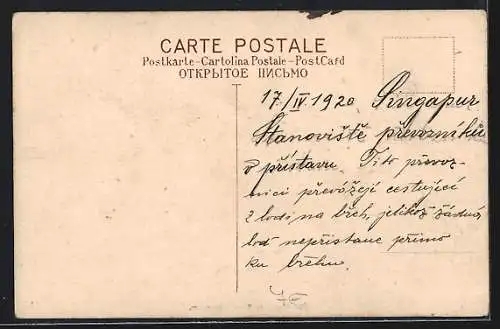 CARTE POSTALE
Postkarte-Cartolina Postale-PostCard
ОТКРЫТОЕ ПИСЬМО
17/IV 1920 Singapur
Stanoviště převozníků
v přístavu. Tito převoz-
níci převážejí cestující
z lodí na břeh, jelikož žádná
loď nepřistane přímo
ku břehu.